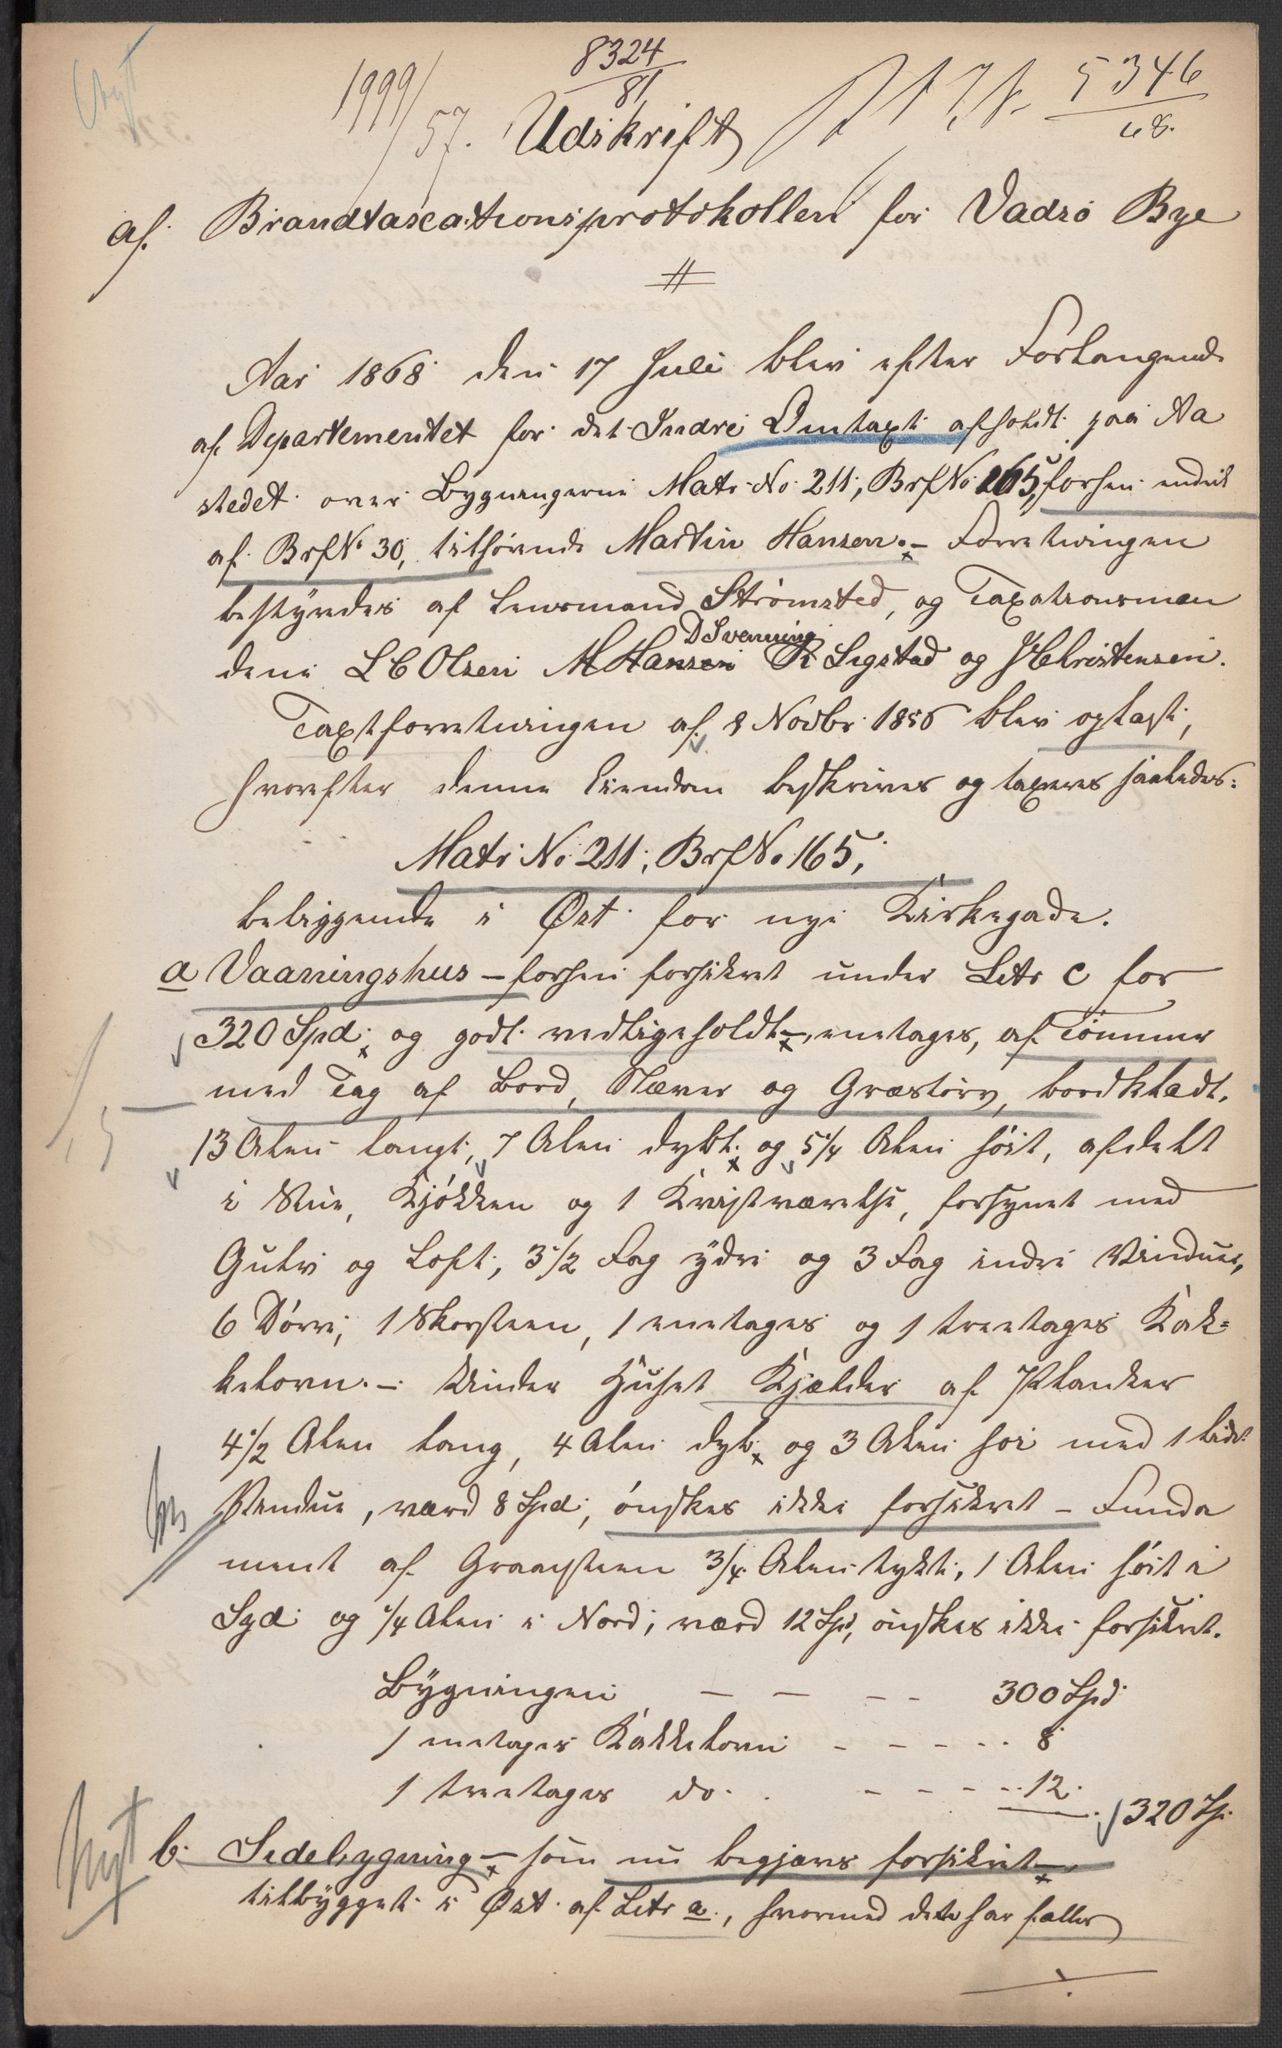 8324
81
1999/57.
5346
68.
Udskrift
af Brandtaxationsprotokollen for Vadsø Bye
Aar 1868 den 17 Juli blev efter Forlangende
af Departementet for det Indre Omtaxt afholdt paa Aa
stedet over Bygningerne Matr. No. 211, BrfNo. 165, forhen endeel
af BrfNo 30, tilhørende Martin Hansen. – Forretningen
bestyredes af Lensmand Strømsted, og Taxationsmæn
D Svenning
dene L C Olsen M Hansen R Sigstad og J Christensen.
Taxtforretningen af 8 Novbr 1856 blev oplæst,
hvorefter denne Eiendom beskrives og taxeres saaledes:
Matr No 211, BrfNo. 165,
beliggende i Øst for nye Kirkegade.
a Vaaningshus – forhen forsikret under Litr c for
320 Spd, og godt vedligeholdt –, enetages, af Tømmer
med Tag af Bord, Næver og Græstørv, bordklædt,
13 Alen langt, 7 Alen dybt og 5 1/4 Alen høit, afdelt
i Stue, Kjøkken og 1 Kvistværelse, forsynet med
Gulv og Loft, 3 1/2 Fag ydre og 3 Fag indre Vinduer,
6 Dørre, 1 Skorsteen, 1 enetages og 1 treetages Kak=
kelovn. – Under Huset Kjælder af Planker
4 1/2 Alen lang, 4 Alen dyb og 3 Alen høi med 1 lidet
Vindue, værd 8 Spd, ønskes ikke forsikret – Funda
ment af Graasteen 3/4 Alen tykt, 1 Alen høit i
Syd og 1/4 Alen i Nord, værd 12 Spd, ønskes ikke forsikret.
Bygningen – – – – 300 Spd
1 enetages Kakkelovn – – – – 8
1 treetages do. – – – – 12.
320 Sp.
Nyt
b. Sidebygning – som nu begjæres forsikret –,
tilbygget i Øst af Litr a., hvormed dette har fælles